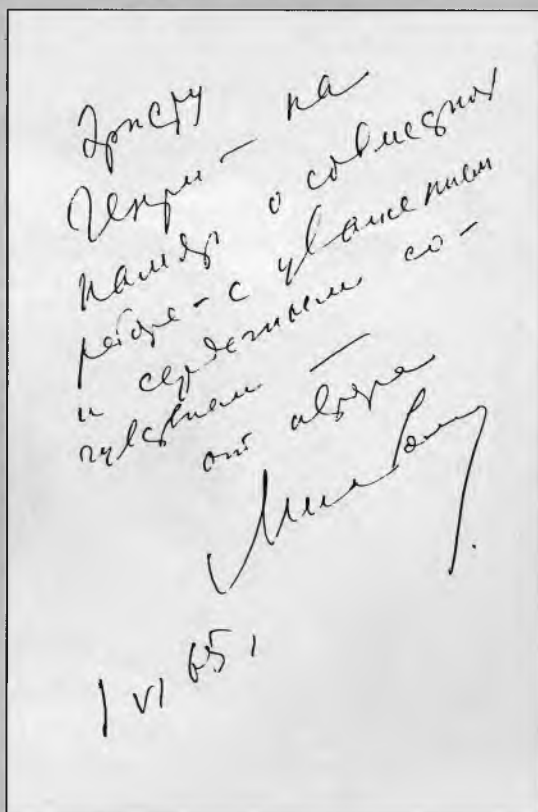 Эрнсту
Генри – на
память о совместной
работе – с уважением
и сердечным со-
чувствием –
от автора
1 VI 65,